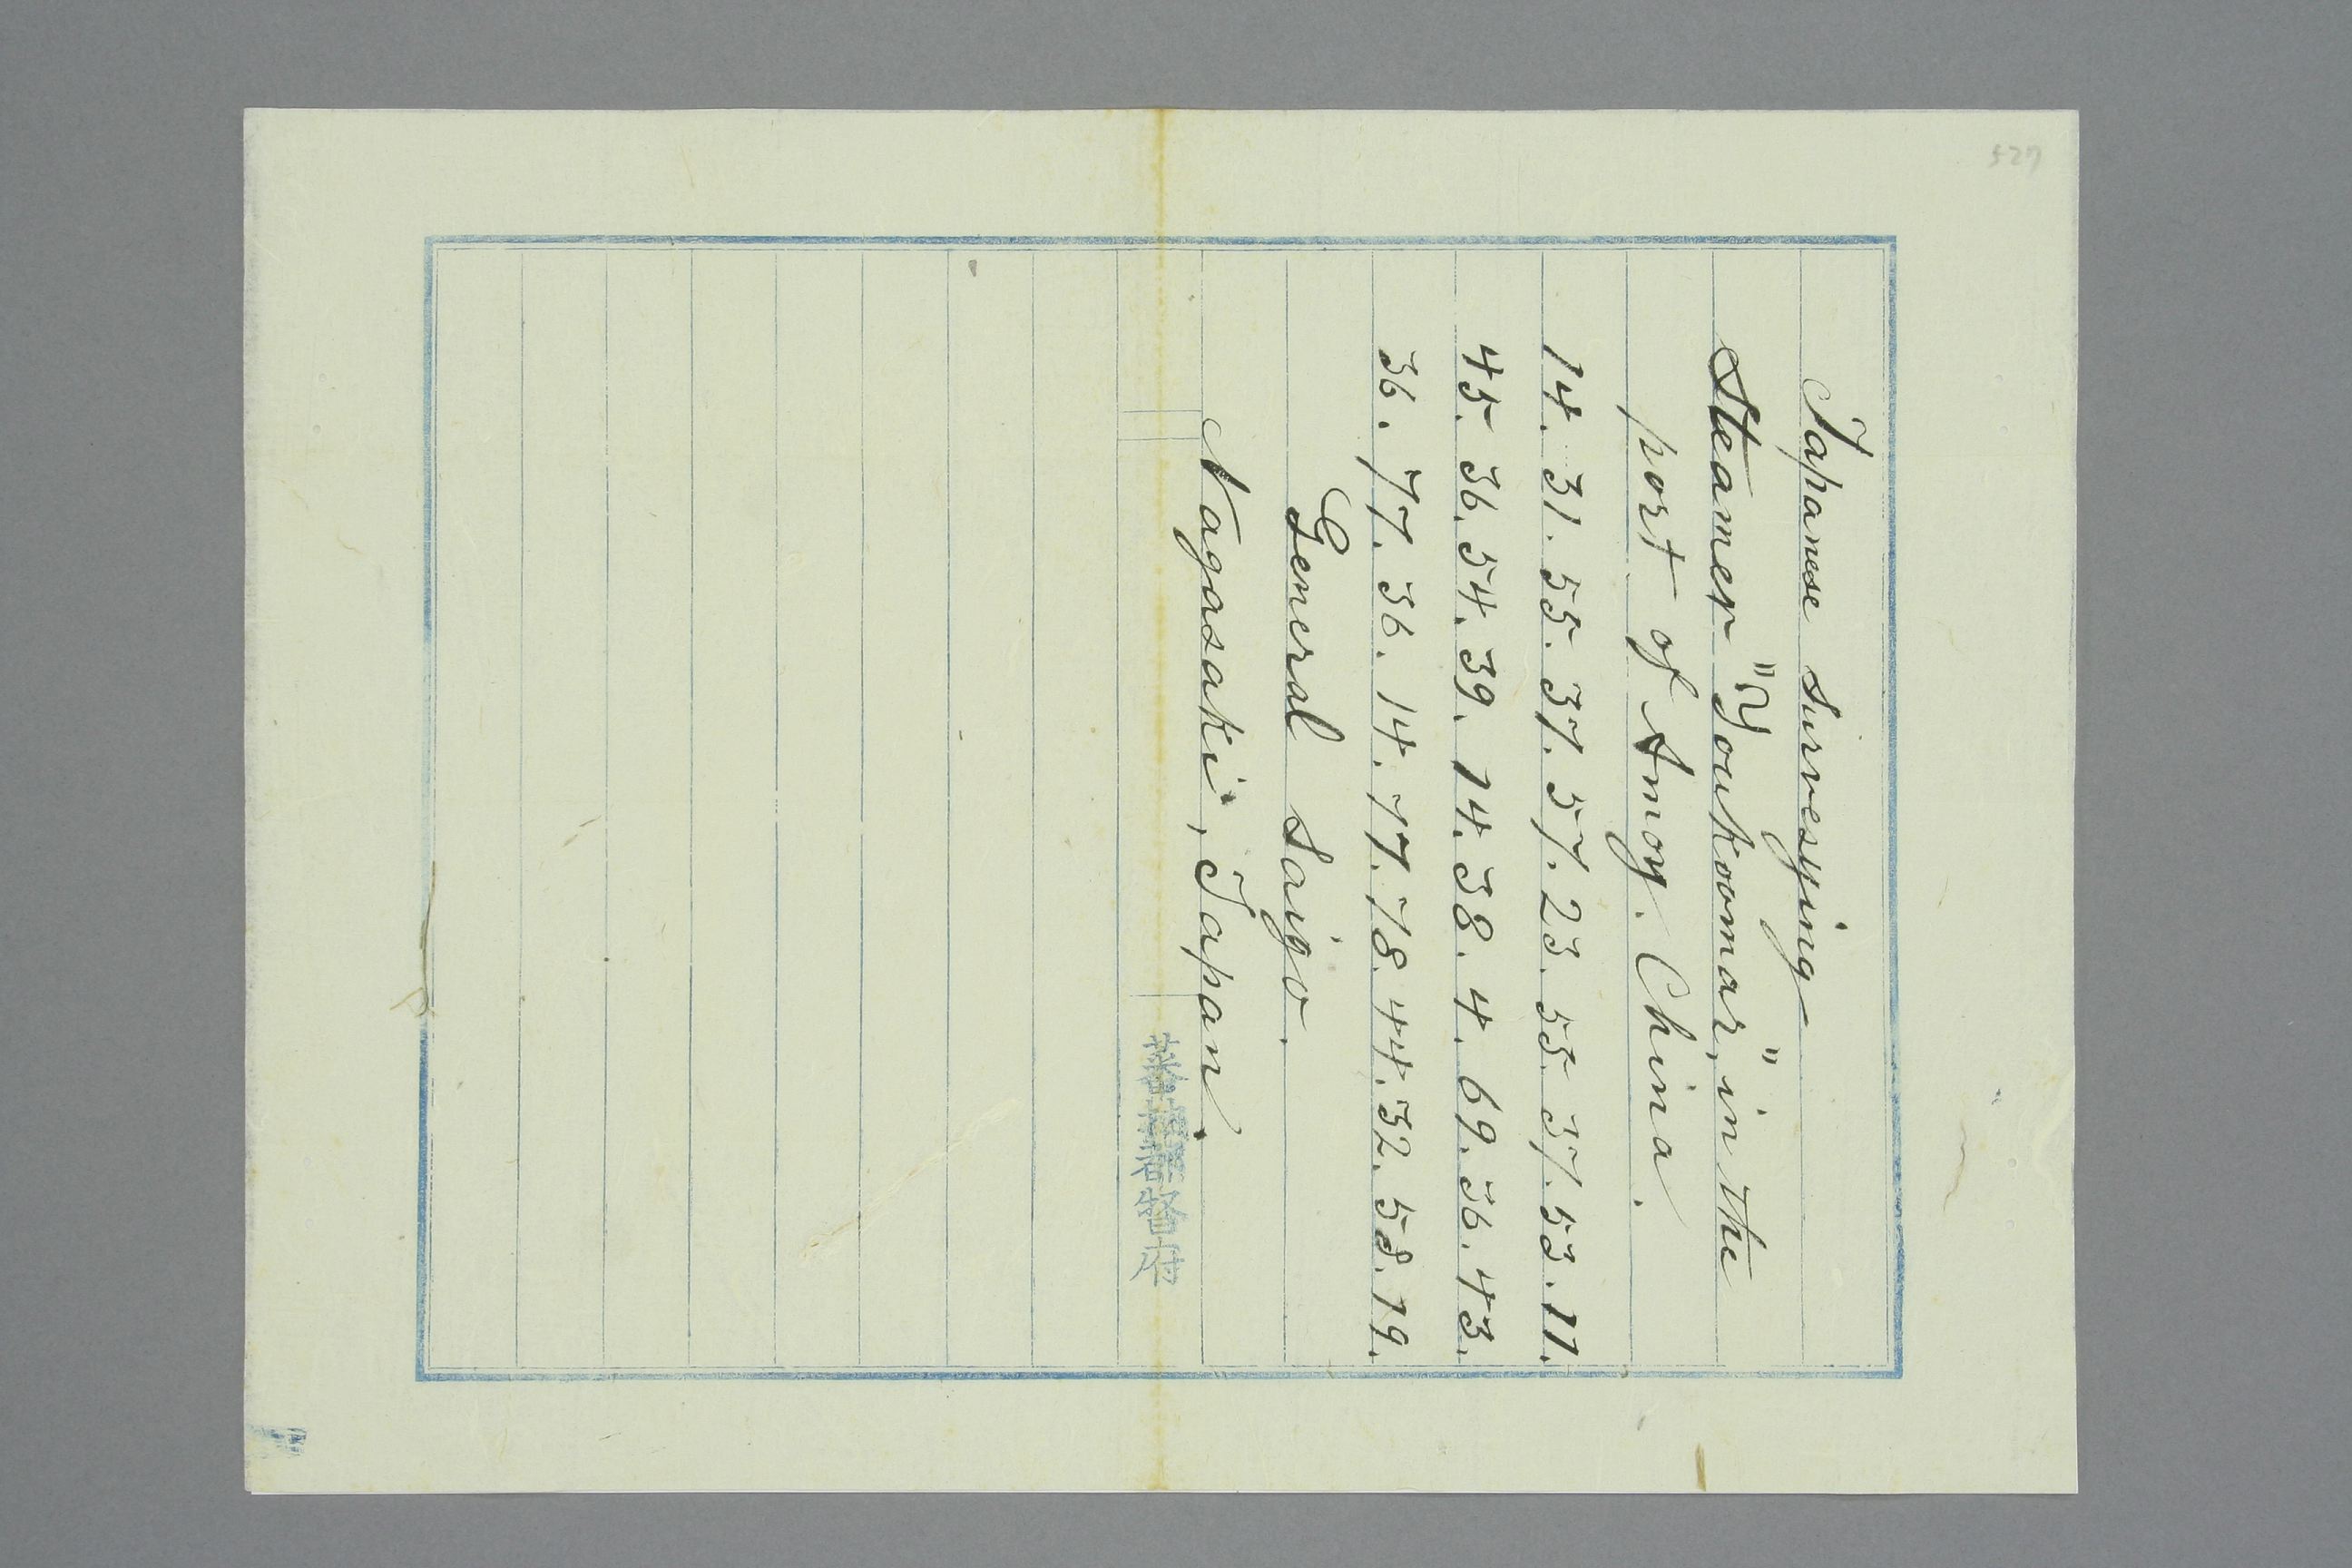 527
Japanese Surveying
Steamer "Youkoomar," in the
port of Amoy. China.
14. 31. 55. 37. 57. 23. 55. 37. 53. 11.
45. 36. 54. 39. 14. 38. 4. 69. 36. 43.
36. 77. 36. 14. 17. 78. 44. 32. 58. 19.
General Saigo.
Nagasaki, Japan.
蕃地都督府